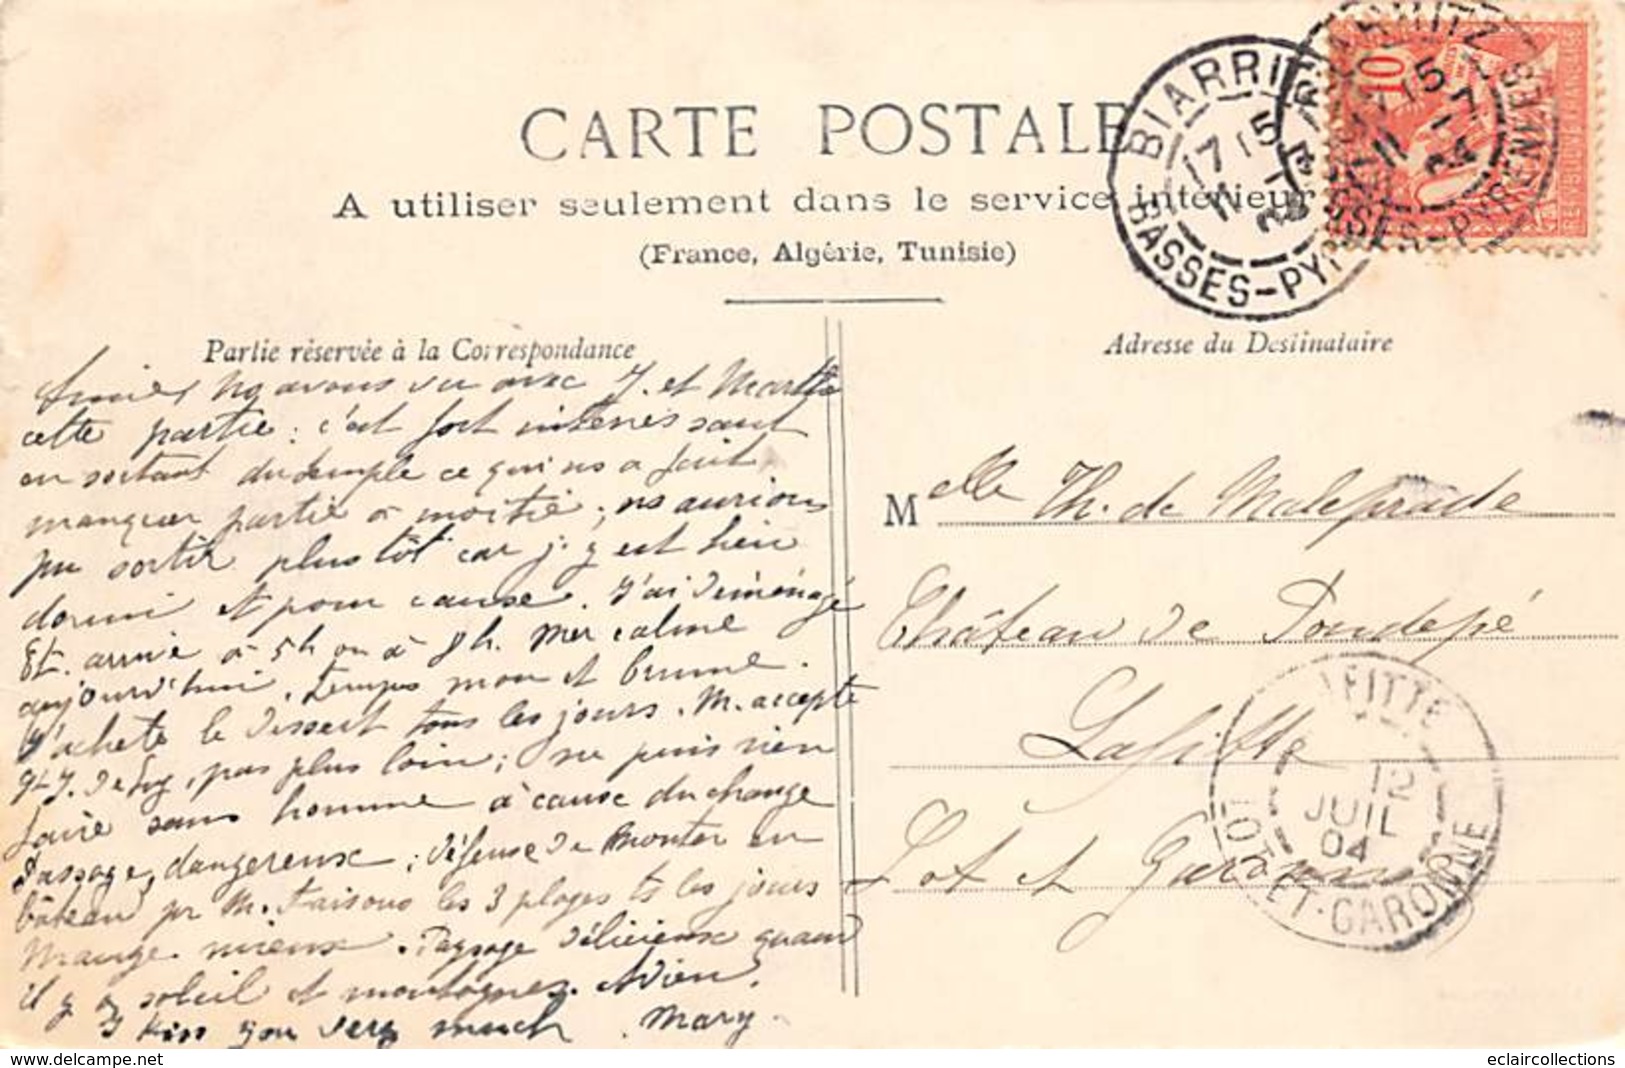 CARTE POSTALE
A utiliser seulement dans le service intérieur
(France, Algérie, Tunisie)
BIARRITZ
17 15
11 7
04
BASSES-PYRENEES
10
Partie réservée à la Correspondance
ns avons vu avec J. et Marthe
cette partie : c'est fort intéressant
en sortant du temple ce qui ns a fait
manquer partie à moitié ; ns aurions
pu sortir plus tôt car j'y est bien
dormi et pour cause. J'ai déménagé
Et. arrive à 5h ou à 8h. Mer calme
aujourd'hui. Temps mou et brume.
J'achète le dessert tous les jours. M. accepte
pas plus loin ; ne puis rien
faire sans homme à cause du change
Passage dangereux ; défense de monter en
bâteau pr M. Faisons les 3 plages ts les jours
Mange mieux. Paysage délicieux quand
il y a soleil et montagnes. Adieu.
I kiss you very much. Mary.
Adresse du Destinataire
Melle Th. de Maleprade
Château de Poudepé
Lafitte
Lot et Garonne
LAFITTE
12
JUIL
04
LOT-ET-GARONNE
www.delcampe.net
eclaircollections